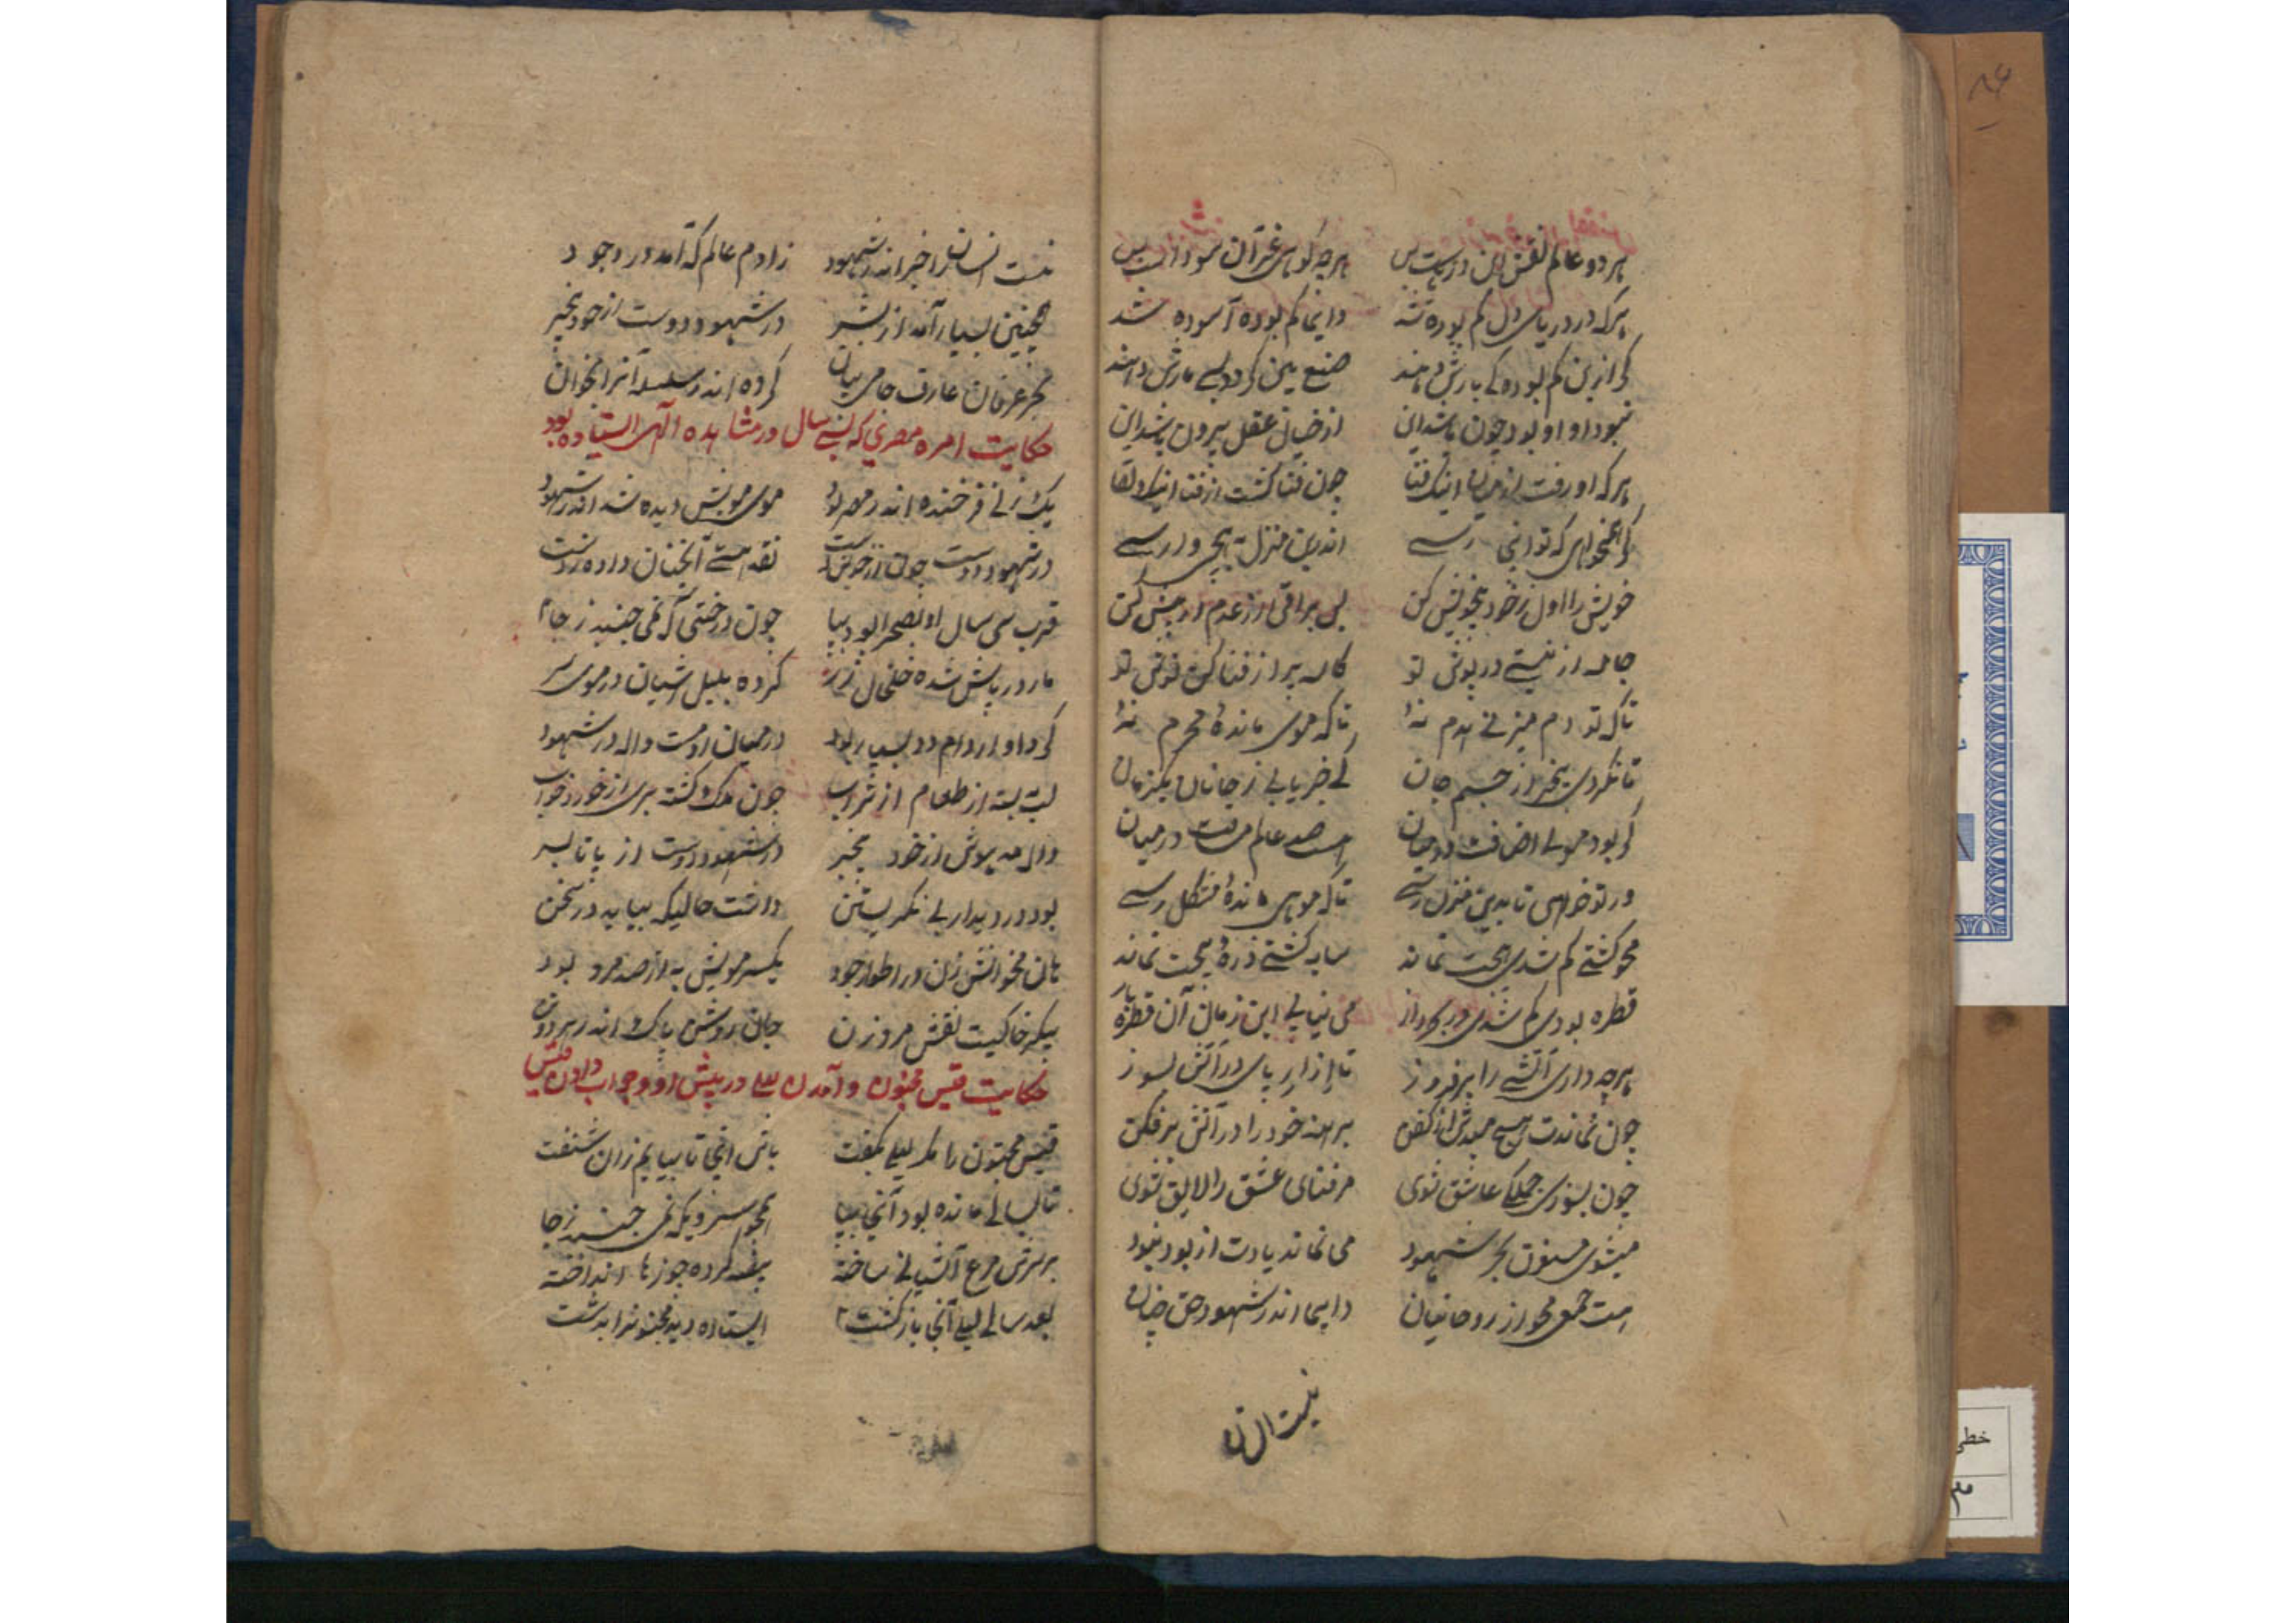 هر دو عالم نقش این دریاست بس هرچه گوئی غیر آن سوداست بس
هرکه در دریای دل گم بوده شد دایما گم بوده آسوده شد
گر ازین گم بوده کی بازش دهند صنع بین گردد بسی رازش دهند
نبود او او بود چون باشد این از خیال عقل بیرون باشد این
هرکه او رفت از میان اینک فنا چون فنا گشت از فنا اینک بقا
گر همیخواهی که تو اینجا رسی اندرین منزل رسی
خویش را اول ز خود بیخویش کن پس براقی از عدم در پیش کن
جامه از نیستی در پوش تو کاسه پر از فنا کن نوش تو
تا که تو دم میزنی همدم نۀ تا که موی ماندۀ محرم نۀ
تا نگردی بیخبر از جسم و جان کی خبر یابی ز جانان یکزمان
گر بود موئی اضافت در میان هست صد عالم مسافت در میان
ور تو خواهی تا بدین منزل رسی تا که موی ماندۀ مشکل رسی
محو گشتی گم شدی هیچت نماند سایه گشتی ذرۀ هیچت نماند
قطره بودی گم شدی در بحر راز می نیابی این زمان آن قطره باز
هرچه داری آتشی را برفروز تا ازار پای در آتش بسوز
چون نماندت هیچ مندیش از کفن برهنه خود را در آتش برفکن
چون بسوزی جملگی عاشق شوی مر فنای عشق را لایق شوی
میشوی مستغرق بحر شهود می نماند یادت از بود و نبود
هست جمعی محو از روحانیان دایما اندر شهود حق چنان
نیست انسان
نیست انسانرا خبر اندر شهود ز آدم و عالم که آمد در وجود
همچنین بسیار آمد از بشر در شهود دوست از خود بیخبر
بحر عرفان عارف جامی بیان کرده اندر سلسله آنرا بخوان
حکایت امره مصری که سی سال در مشاهده الهی ایستاده بود
یک زنی فرخنده اندر مصر بود موی مویش دیده شد اندر شهود
در شهود دوست چون از خویش رست نقد هستی آنچنان داده ز دست
قرب سی سال او بصحرا بود بپا چون درختی که نمی جنبد ز جا
مار در پایش شده خلخال زر کرده بلبل آشیان در موی سر
گرد او از دام و دد بسیار بود در میان او مست و واله در شهود
لب بسته از طعام از شراب چون ملک گشته بری از خورد و خواب
واله مدهوش از خود بیخبر در شهود دوست از پا تا بسر
بود در دیدار بی نگریستن داشت حالیکه بیاید در سخن
هان مخوانش زن در اطوار وجود یکسر مویش به از صد مرد بود
پیکر خاکیت نقش مرد و زن جان روشن پاک اندر هر دو تن
حکایت قیس مجنون و آمدن لیلی در پیش او و جواب دادن قیس
قیس مجنون را مگر لیلی بگفت باش اینجا تا بیایم زان شنفت
تا بسالی مانده بود آنجا بپا همچو سرویکه نمی جنبد ز جا
بر سرش مرغ آشیانی ساخته بیضه کرده جوزها انداخته
بعد سالی لیلی آنجا بازگشت ایستاده دید مجنونرا بدشت
خطی